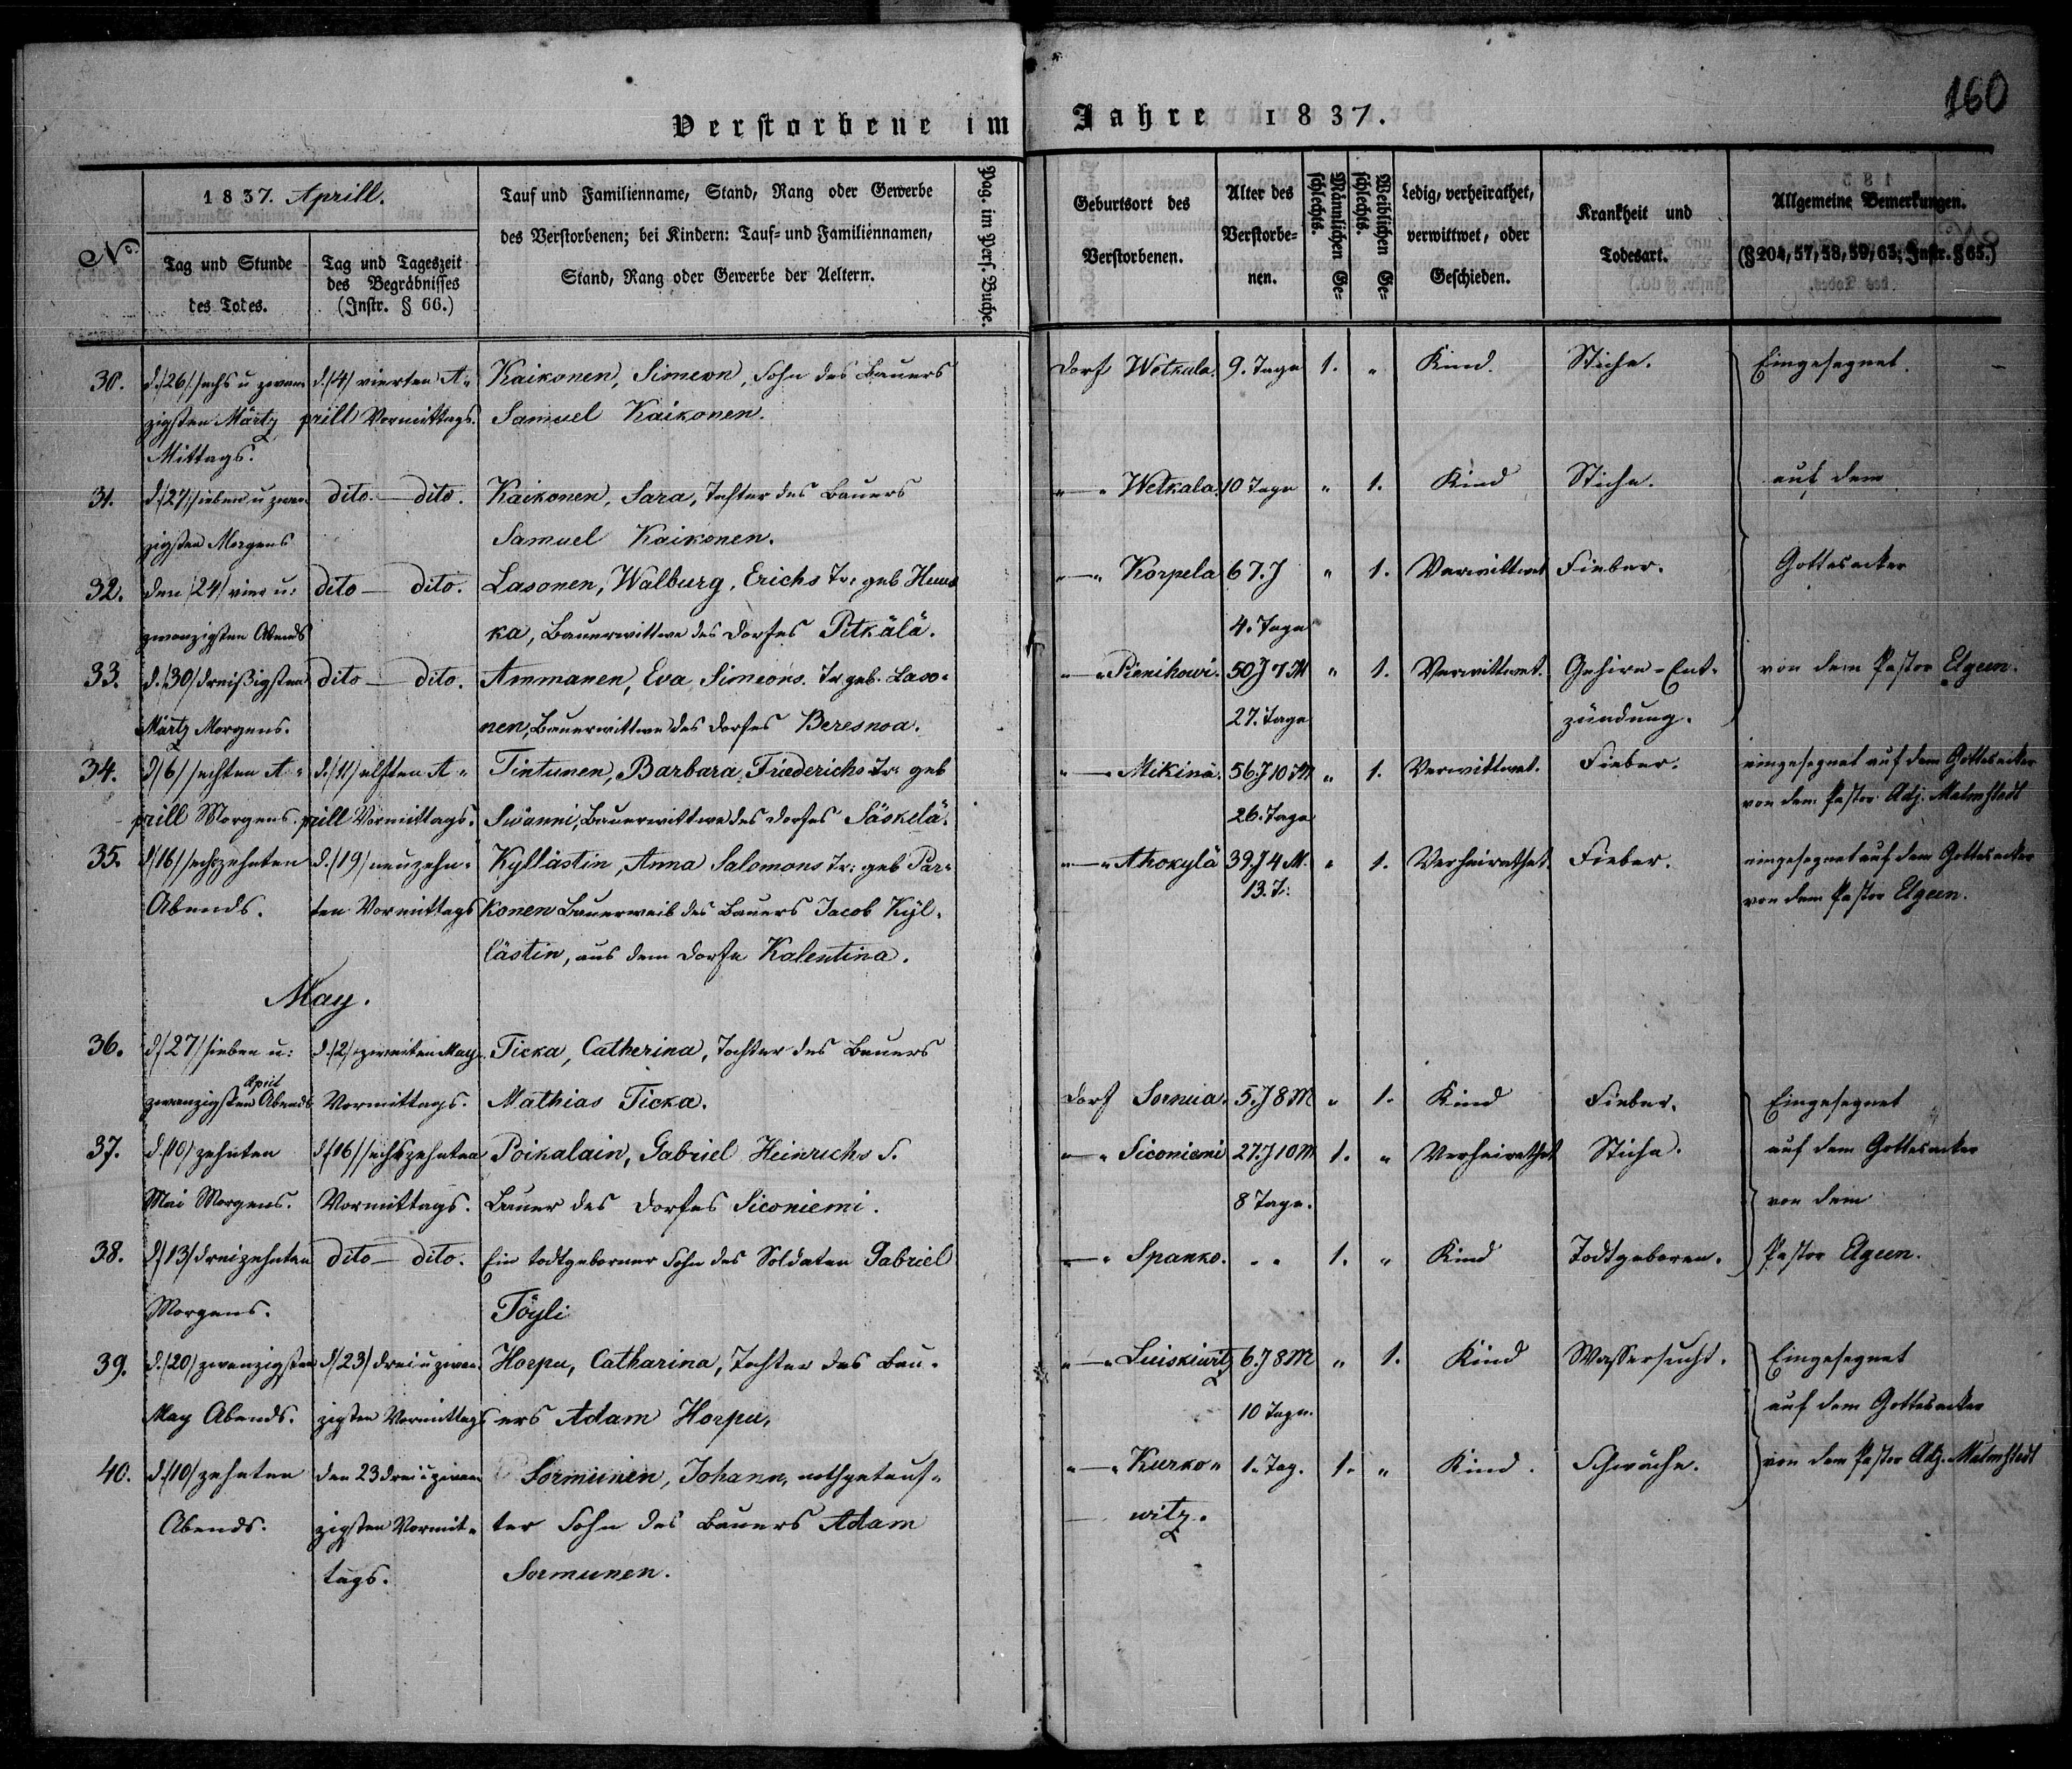 160
Verstorbene im Jahre 1837.
No.
1837. Aprill.
Tag und Stunde
des Todes.
Tag und Tageszeit
des Begräbnisses
(Instr. § 66.)
Tauf und Familienname, Stand, Rang oder Gewerbe
des Verstorbenen; bei Kindern: Tauf- und Familiennamen,
Stand, Rang oder Gewerbe der Aeltern.
Pag. im Pers. Buche.
Geburtsort des
Verstorbenen.
Alter des
Verstorbe-
nen.
Männlichen Ge-
schlechts.
Weiblichen Ge-
schlechts.
Ledig, verheirathet,
verwittwet, oder
Geschieden.
Krankheit und
Todesart.
Allgemeine Bemerkungen.
(§ 204, 57, 58, 59, 63; Instr. § 65.)
30. d. /26/ sechs u zwan d. /4/ vierten A= Kaikonen, Simeon, Sohn des Bauers Dorf Wetkala. 9. Tage 1. " Kind. Stiche. Eingesegnet.
zigsten Märtz prill Vormittags. Samuel Kaikonen.
Mittags.
31. d. /27/ sieben u zwan dito. — dito. Kaikonen, Sara, Tochter des Bauers "—" Wetkala. 10 Tage " 1. Kind Stiche. auf dem
zigsten Morgens Samuel Kaikonen.
32. den /24/ vier u: dito — dito. Lasonen, Walburg, Erichs Tr. geb "—" Korpela 67. J " 1. Verwittwet Fieber. Gottesacker
zwanzigsten Abends ka, Bauerwittwe des Dorfes Pitkälä. 4. Tage
33. d. /30/ dreißigsten dito — dito. Ammanen, Eva Simeons. Tr geb. Laso= "—" Pienikowi. 50 J 7 M " 1. Verwittwet. Gehirn-Ent-
Märtz Morgens. nen, Bauerwittwe des Dorfes Beresnoa. 27. Tage zündung. von dem Pastor Elgeen.
34. d /6/ sechten A= d. /11/ elften A= Tintunen, Barbara, Friederichs Tr: geb "—" Mikina. 56 J 10 M " 1. Verwittwet. Fieber. eingesegnet auf dem Gottesacker
prill Morgens. prill Vormittags. Siwänni, Bauerwittwe des Dorfes Säskelä. 26. Tage von dem Pastor Adj. Malmstedt
35. d /16/ sechzehnten d. /19/ neunzehn= Kyllästin, Anna Salomons Tr: geb Par= "—" Ahokylä 39 J 4 M. " 1. Verheirathet Fieber. eingesegnet auf dem Gottesacker
Abends. ten Vormittags konen Bauerweib des Bauers Jacob Kyl= 13. T. von dem Pastor Elgeen.
lästin, aus dem Dorfe Kalentina.
May.
36. d /27/ sieben u: d. /2/ zweiten May. Ticka, Catherina, Tochter des Bauers
zwanzigsten April Abends Vormittags. Mathias Ticka. Dorf Sornua. 5. J 8 M " 1. Kind Fieber. Eingesegnet
37. d. /10/ zehnten d /16/ sechszehnten Poikalain, Gabriel Heinrichs S. "—" Siconiemi 27. J 10 M 1. " Verheirathet Stiche. auf dem Gottesacker
Mai Morgens. Vormittags. Bauer des Dorfes Siconiemi. 8 Tage. von dem
38. d /13/ dreizehnten dito — dito. Ein todtgeborner Sohn des Soldaten Gabriel "—" Spanko. " " 1. " Kind Todtgeboren. Pastor Elgeen.
Morgens. Töyli
39. d. /20/ zwanzigsten d /23/ drei u zwan= Horpu, Catharina, Tochter des Bau= "—" Luiskiurtz 6. J 8 M " 1. Kind Wassersucht. Eingesegnet
May Abends. zigsten Vormittags ers Adam Horpu. 10 Tage. auf dem Gottesacker
40. d. /10/ zehnten den 23 drei u zwan Sormunen, Johann, nothgetauf= "—" Kurko= 1. Tag. 1. " Kind. Schwäche. von dem Pastor Adj. Malmstedt
Abends. zigsten Vormit= ter Sohn des Bauers Adam witz.
tags. Sormunen.